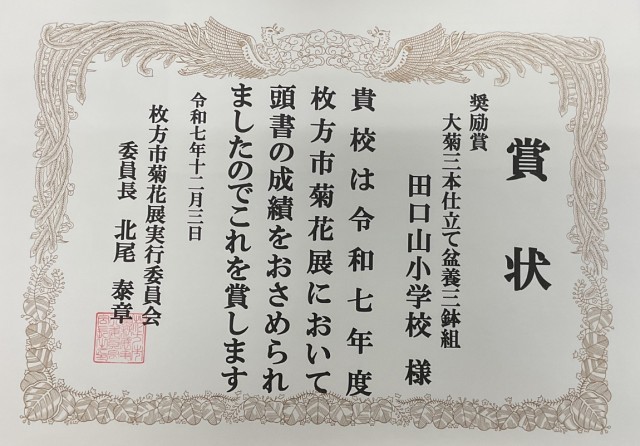 賞状
奨励賞
大菊三本仕立て盆養三鉢組
田口山小学校 様
貴校は令和七年度
枚方市菊花展において
頭書の成績をおさめられ
ましたのでこれを賞します
令和七年十二月三日
枚方市菊花展実行委員会
委員長 北尾 泰章